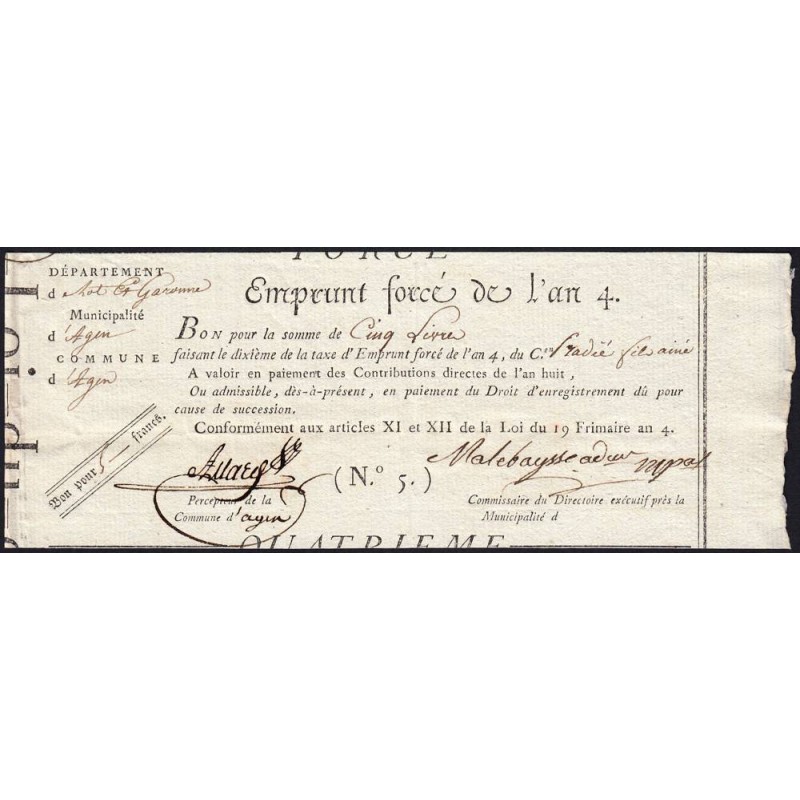 FORCÉ
DÉPARTEMENT
d Lot Et Garonne
Municipalité
d'Agen
COMMUNE
d'Agen
Bon pour 5 francs.
Emprunt forcé de l'an 4.
BON pour la somme de Cinq Livre
faisant le dixième de la taxe d'Emprunt forcé de l'an 4, du C.en Pradié fils ainé
A valoir en paiement des Contributions directes de l'an huit,
Ou admissible, dès-à-présent, en paiement du Droit d'enregistrement dû pour
cause de succession.
Conformément aux articles XI et XII de la Loi du 19 Frimaire an 4.
(N.o 5.)
Malebaysse
Percepteur de la
Commune d'agen
Commissaire du Directoire exécutif près la
Municipalité d
QUATRIEME